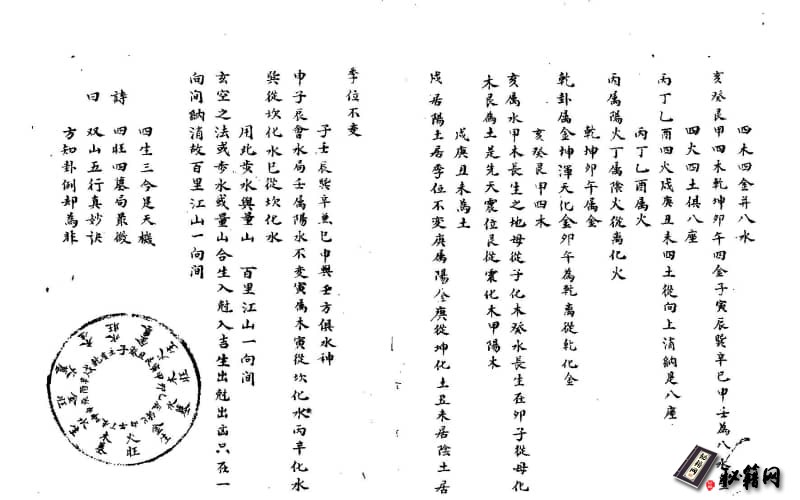 四木四金并八水
亥癸艮甲四木乾坤卯午四金子寅辰巽辛巳申壬為八水
四火四土俱八座
丙丁乙酉四火戌庚丑未四土從向上消納是八座
丙丁乙酉屬火
丙屬陽火丁屬陰火從离化火
乾坤卯午屬金
乾卦屬金坤渾天化金卯午為乾离從乾化金
亥癸艮甲四木
亥屬水甲木長生之地母從子化木癸水長生在卯子從母化
木艮為土是先天震位艮從震化木甲陽木
戌庚丑未為土
戌居陽土居季位不变庚屬陽金庚從坤化土丑未居陰土居
季位不变
子壬辰巽辛兼巳申與壬方俱水神
申子辰會水局壬屬陽水不变寅屬木寅從坎化水丙辛化水
巽從坎化水巳從坎化水
用此黄水與量山 百里江山一向间
玄空之法或步水或量山合生入尅入吉生出尅出凶只在一
向间納消故百里江山一向间
四生三合是天機
詩 四旺四墓局最微
曰 双山五行真妙訣
方知卦例却為非
火旺
木墓
秘籍网